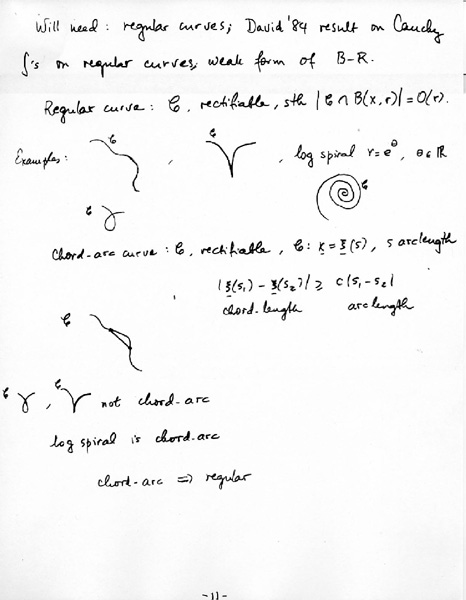 Will need: regular curves; David '84 result on Cauchy
∫'s on regular curves; weak form of B-R.
Regular curve: C, rectifiable, sth |C ∩ B(x,r)| = O(r).
Examples: C , C , log spiral r = e^θ, θ ∈ ℝ
C
C
Chord-arc curve: C, rectifiable, C: x = ξ(s), s arclength
|ξ(s₁) - ξ(s₂)| ≥ c|s₁ - s₂|
chord-length arc length
C
C , C not chord-arc
log spiral is chord-arc
chord-arc ⇒ regular
-11-